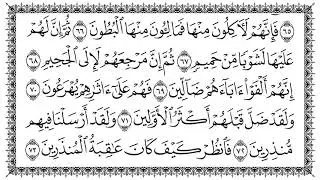 ٦٥ فَإِنَّهُمْ لَآكِلُونَ مِنْهَا فَمَالِئُونَ مِنْهَا الْبُطُونَ ٦٦ ثُمَّ إِنَّ لَهُمْ
عَلَيْهَا لَشَوْبًا مِّنْ حَمِيمٍ ٦٧ ثُمَّ إِنَّ مَرْجِعَهُمْ لَإِلَى الْجَحِيمِ ٦٨
إِنَّهُمْ أَلْفَوْا آبَاءَهُمْ ضَالِّينَ ٦٩ فَهُمْ عَلَىٰ آثَارِهِمْ يُهْرَعُونَ ٧٠
وَلَقَدْ ضَلَّ قَبْلَهُمْ أَكْثَرُ الْأَوَّلِينَ ٧١ وَلَقَدْ أَرْسَلْنَا فِيهِم
مُّنذِرِينَ ٧٢ فَانظُرْ كَيْفَ كَانَ عَاقِبَةُ الْمُنذَرِينَ ٧٣